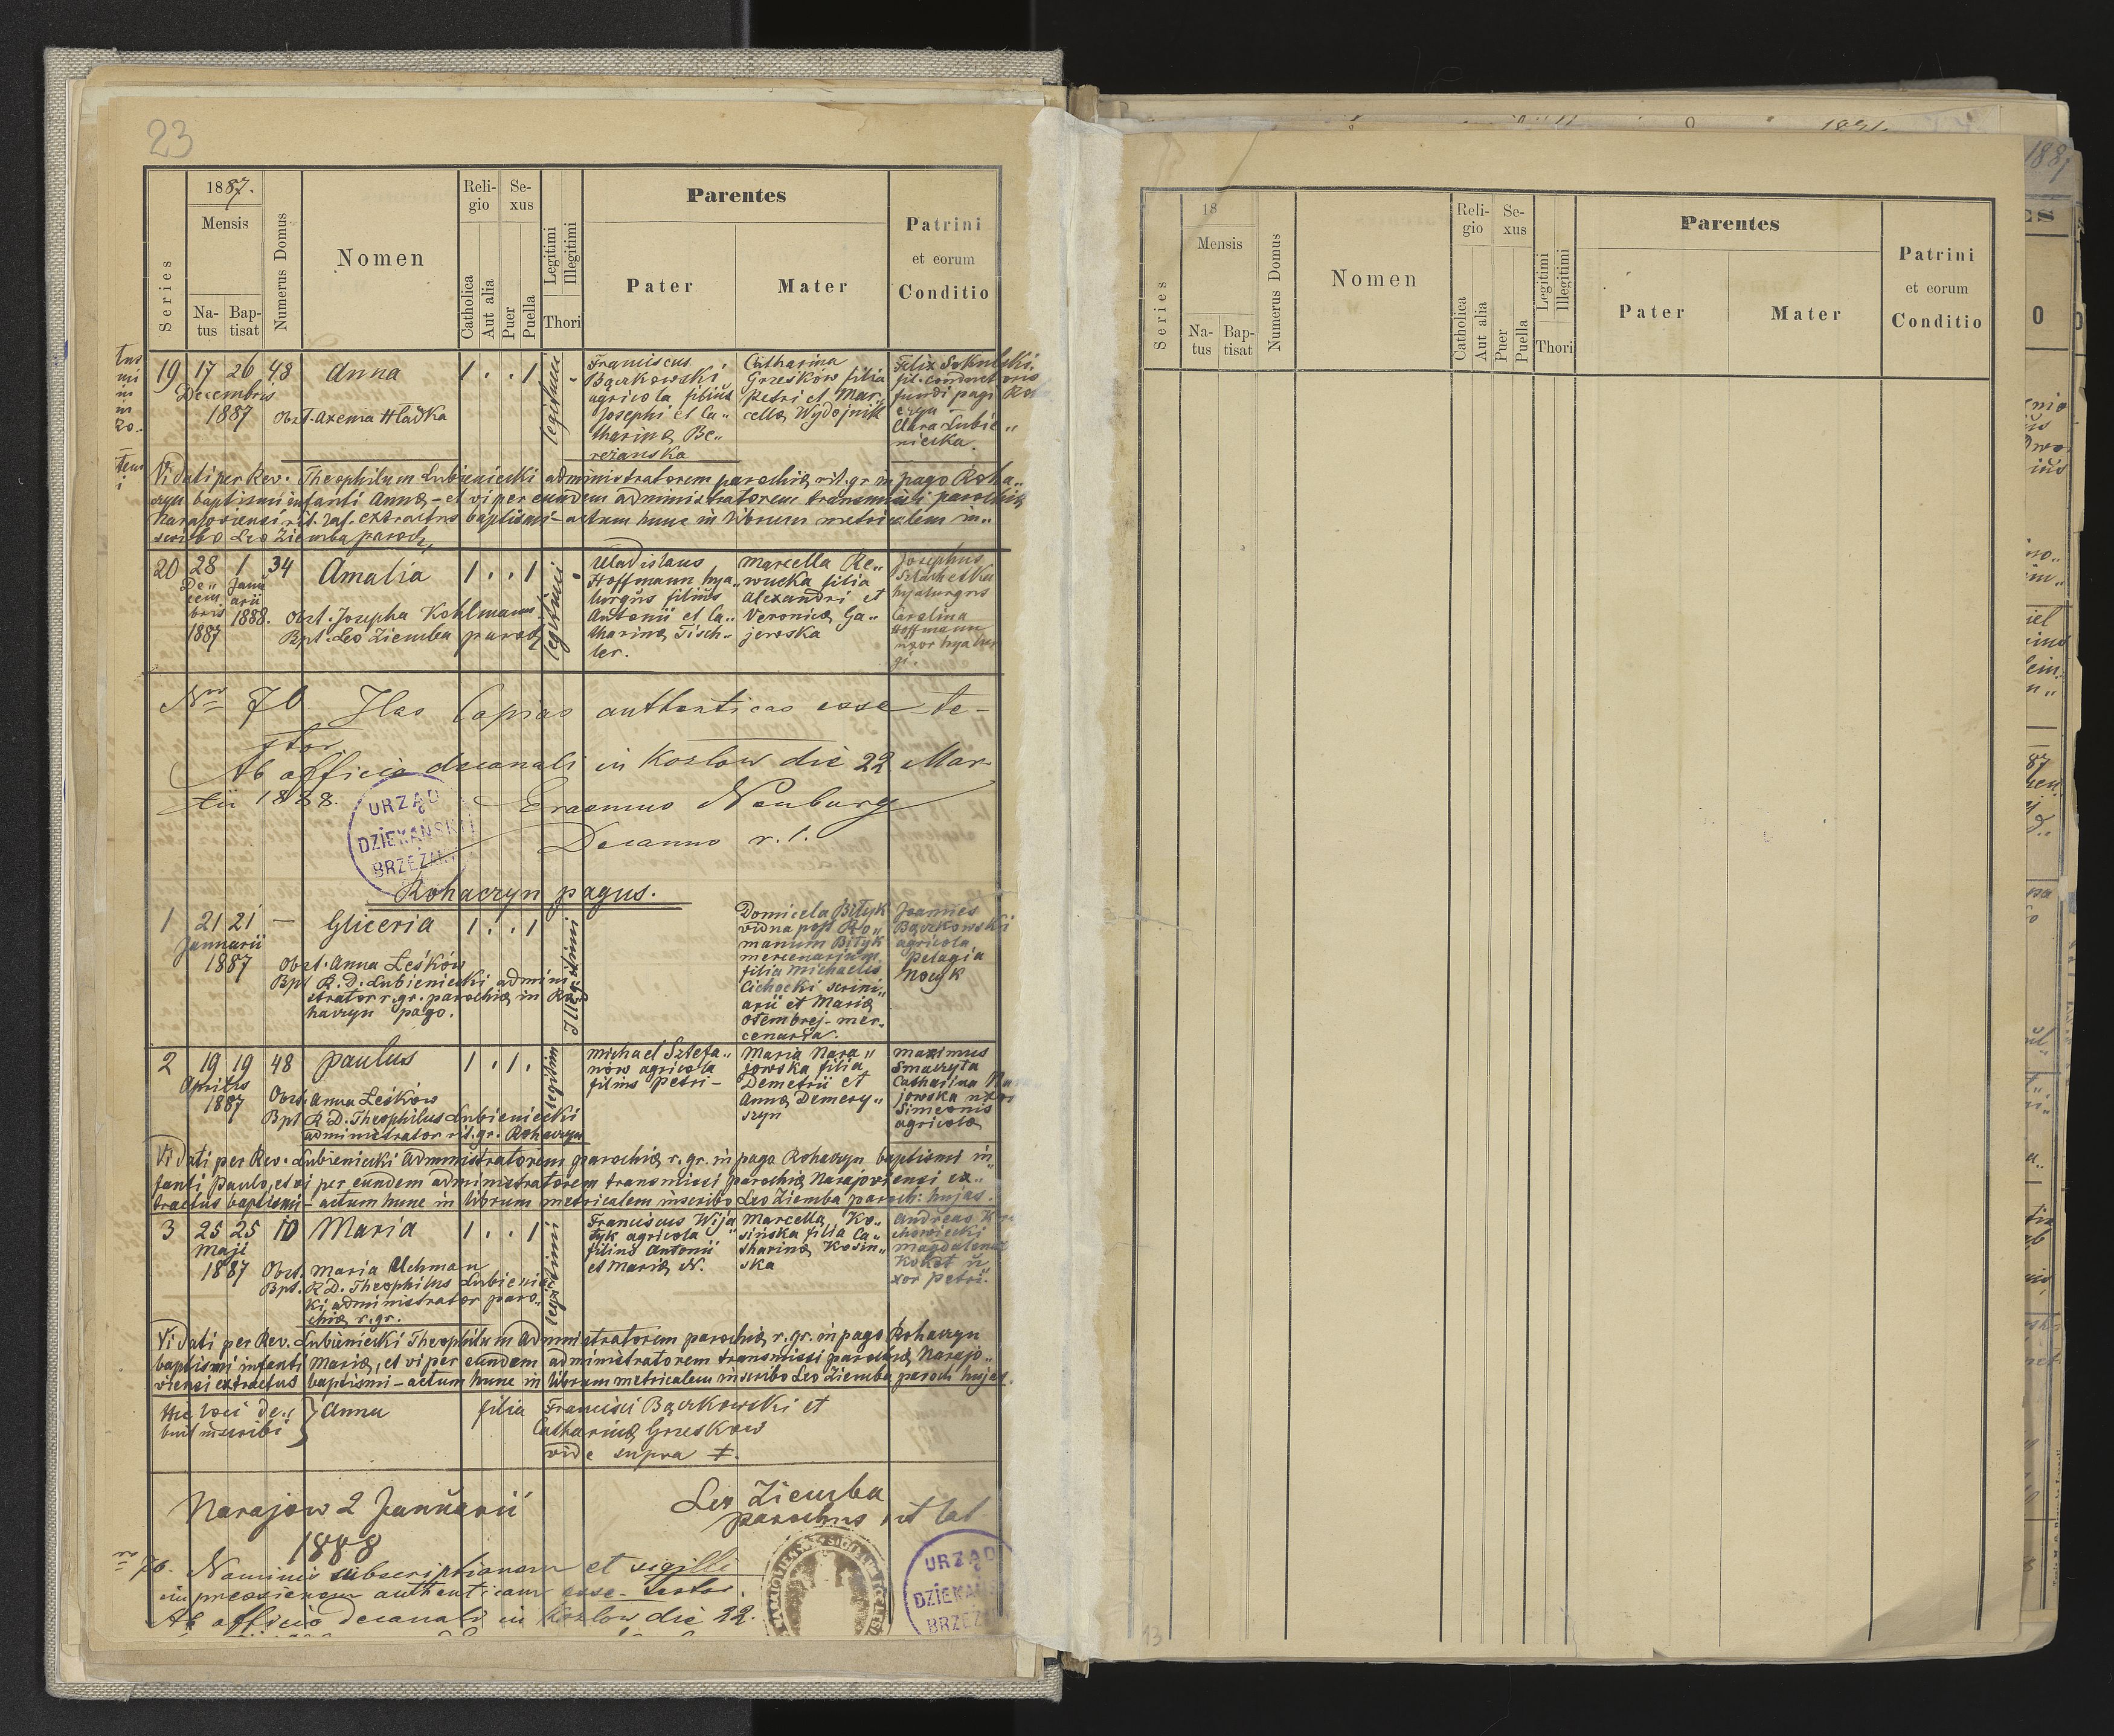 23
1887.
Mensis
Series
Na-
tus
Bap-
tisat
Numerus Domus
Nomen
Reli-
gio
Catholica
Aut alia
Se-
xus
Puer
Puella
Legitimi
Illegitimi
Thori
Parentes
Pater
Mater
Patrini
et eorum
Conditio
19 17 26 48 Anna 1 . . 1 legitimi
Decembris
1887 Obst. Axema Hładka
Franciscus
Bączkowski
agricola filius
Josephi et Ca„
tharinæ Be„
reżanska
Catharina
Grześkow filia
Petri et Mar„
cellæ Wydojnik
Felix Sokulski
fil. conductoris
fundi pagi Ro
czyn
Clara Lubie„
niecka.
Vi dati per Rev. Theophilum Lubieniecki administratorem parochiæ rit. gr in pago Roha„
czyn baptismi infanti Annæ - et vi per eundem administratorem transmissi parochiæ
Narajoviensi rit. lat. extractus baptismi - actum hunc in librum metricalem in„
scribo Leo Ziemba paroch,
20 28 1 34 Amalia 1 . . 1 legitimi
De„ Janu
cem arii
bris 1888.
1887
Obst. Josepha Kohlmann
Bpt. Leo Ziemba paroch
Uladislaus
Hoffmann hya„
lurgus filius
Antonii et Ca„
tharinæ Tisch-
ler.
Marcella Re„
wucka filia
Alexandri et
Veronicæ Ga„
jewska
Josephus
Szlachetka
hyalurgus
Carolina
Hoffmann
uxor hyalur
gi.
Nro 70 Has Copias authenticas esse te-
stor.
Ab officio decanali in Kozlow die 22 Mar-
tii 1888.
Erasmus Neuburg
Decanus r. l.
URZĄD
DZIEKAŃSKI
BRZEŻAN
Rohaczyn pagus.
1 21 21 — Gliceria 1 . . 1 Illegitimi
Januarii
1887 Obst. Anna Leśków
Bpt R. D. Lubieniecki admini
strator r. gr. parochiæ in Ro
haczyn pago.
Domicela Bityk
vidua post Ro„
manum Bityk
mercenarium
filia Michaelis
Cichocki scrini„
arii et Mariæ
Otembrej - mer.
cenaria.
Joannes
Bączkowski
agricola
Pelagia
Nowyk
2 19 19 48 Paulus 1 . 1 . legitimi
Aprilis
1887 Obst. Anna Leśków
Bpt R. D. Theophilus Lubieniecki
administrator rit. gr. Rohaczyn
Michael Stefa„
nów agricola
filius Petri -
Maria Nara„
jowska filia
Demetrii et
Annæ Demery„
szyn
Maximus
Smaczyta
Catharina Nara
jowska uxor
Simeonis
agricolæ
Vi dati per Rev. Lubieniecki Administratorem parochiæ r. gr. in pago Rohaczyn baptismi in„
fanti Paulo, et vi per eundem administratorem transmissi parochiæ Narajoviensi ex„
tractus baptismi - actum hunc in librum metricalem inscribo Leo Ziemba paroch: hujas.
3 25 25 10 Maria 1 . . 1 legitimi
Maji
1887 Obst. Maria Uchman
Bpt. R. D. Theophilus Lubienie
ki administrator paro„
chiæ r. gr.
Franciscus Wija
tyk agricola
filius Antonii
et Mariæ N.
Marcella Ko„
sińska filia Ca„
tharinæ Kosin„
ska
Andreas
chowiecki
Magdalena
Kokot u„
xor Petri.
Vi dati per Rev. Lubieniecki Theophilum Administratorem parochiæ r. gr. in pago Rohaczyn
baptismi infanti Mariæ, et vi per eundem administratorem transmissi parochiæ Narajo„
viensi extractus baptismi - actum hunc in librum metricalem inscribo Leo Ziemba paroch hujas.
Hic loci de„
buit inscribi } Anna filia Francisci Bączkowski et
Catharinæ Grześkow
vide supra ‡.
Narajow 2 Januarii
1888
Leo Ziemba
parochus rit lat
70. Nominis subscriptionem et sigilli
impressionem authenticam esse testor.
Ab officio decanali in Kozlow die 22.
URZĄD
DZIEKAŃS
BRZEŻ
18
Mensis
Series
Na-
tus
Bap-
tisat
Numerus Domus
Nomen
Reli-
gio
Catholica
Aut alia
Se-
xus
Puer
Puella
Legitimi
Illegitimi
Thori
Parentes
Pater
Mater
Patrini
et eorum
Conditio
1887
13